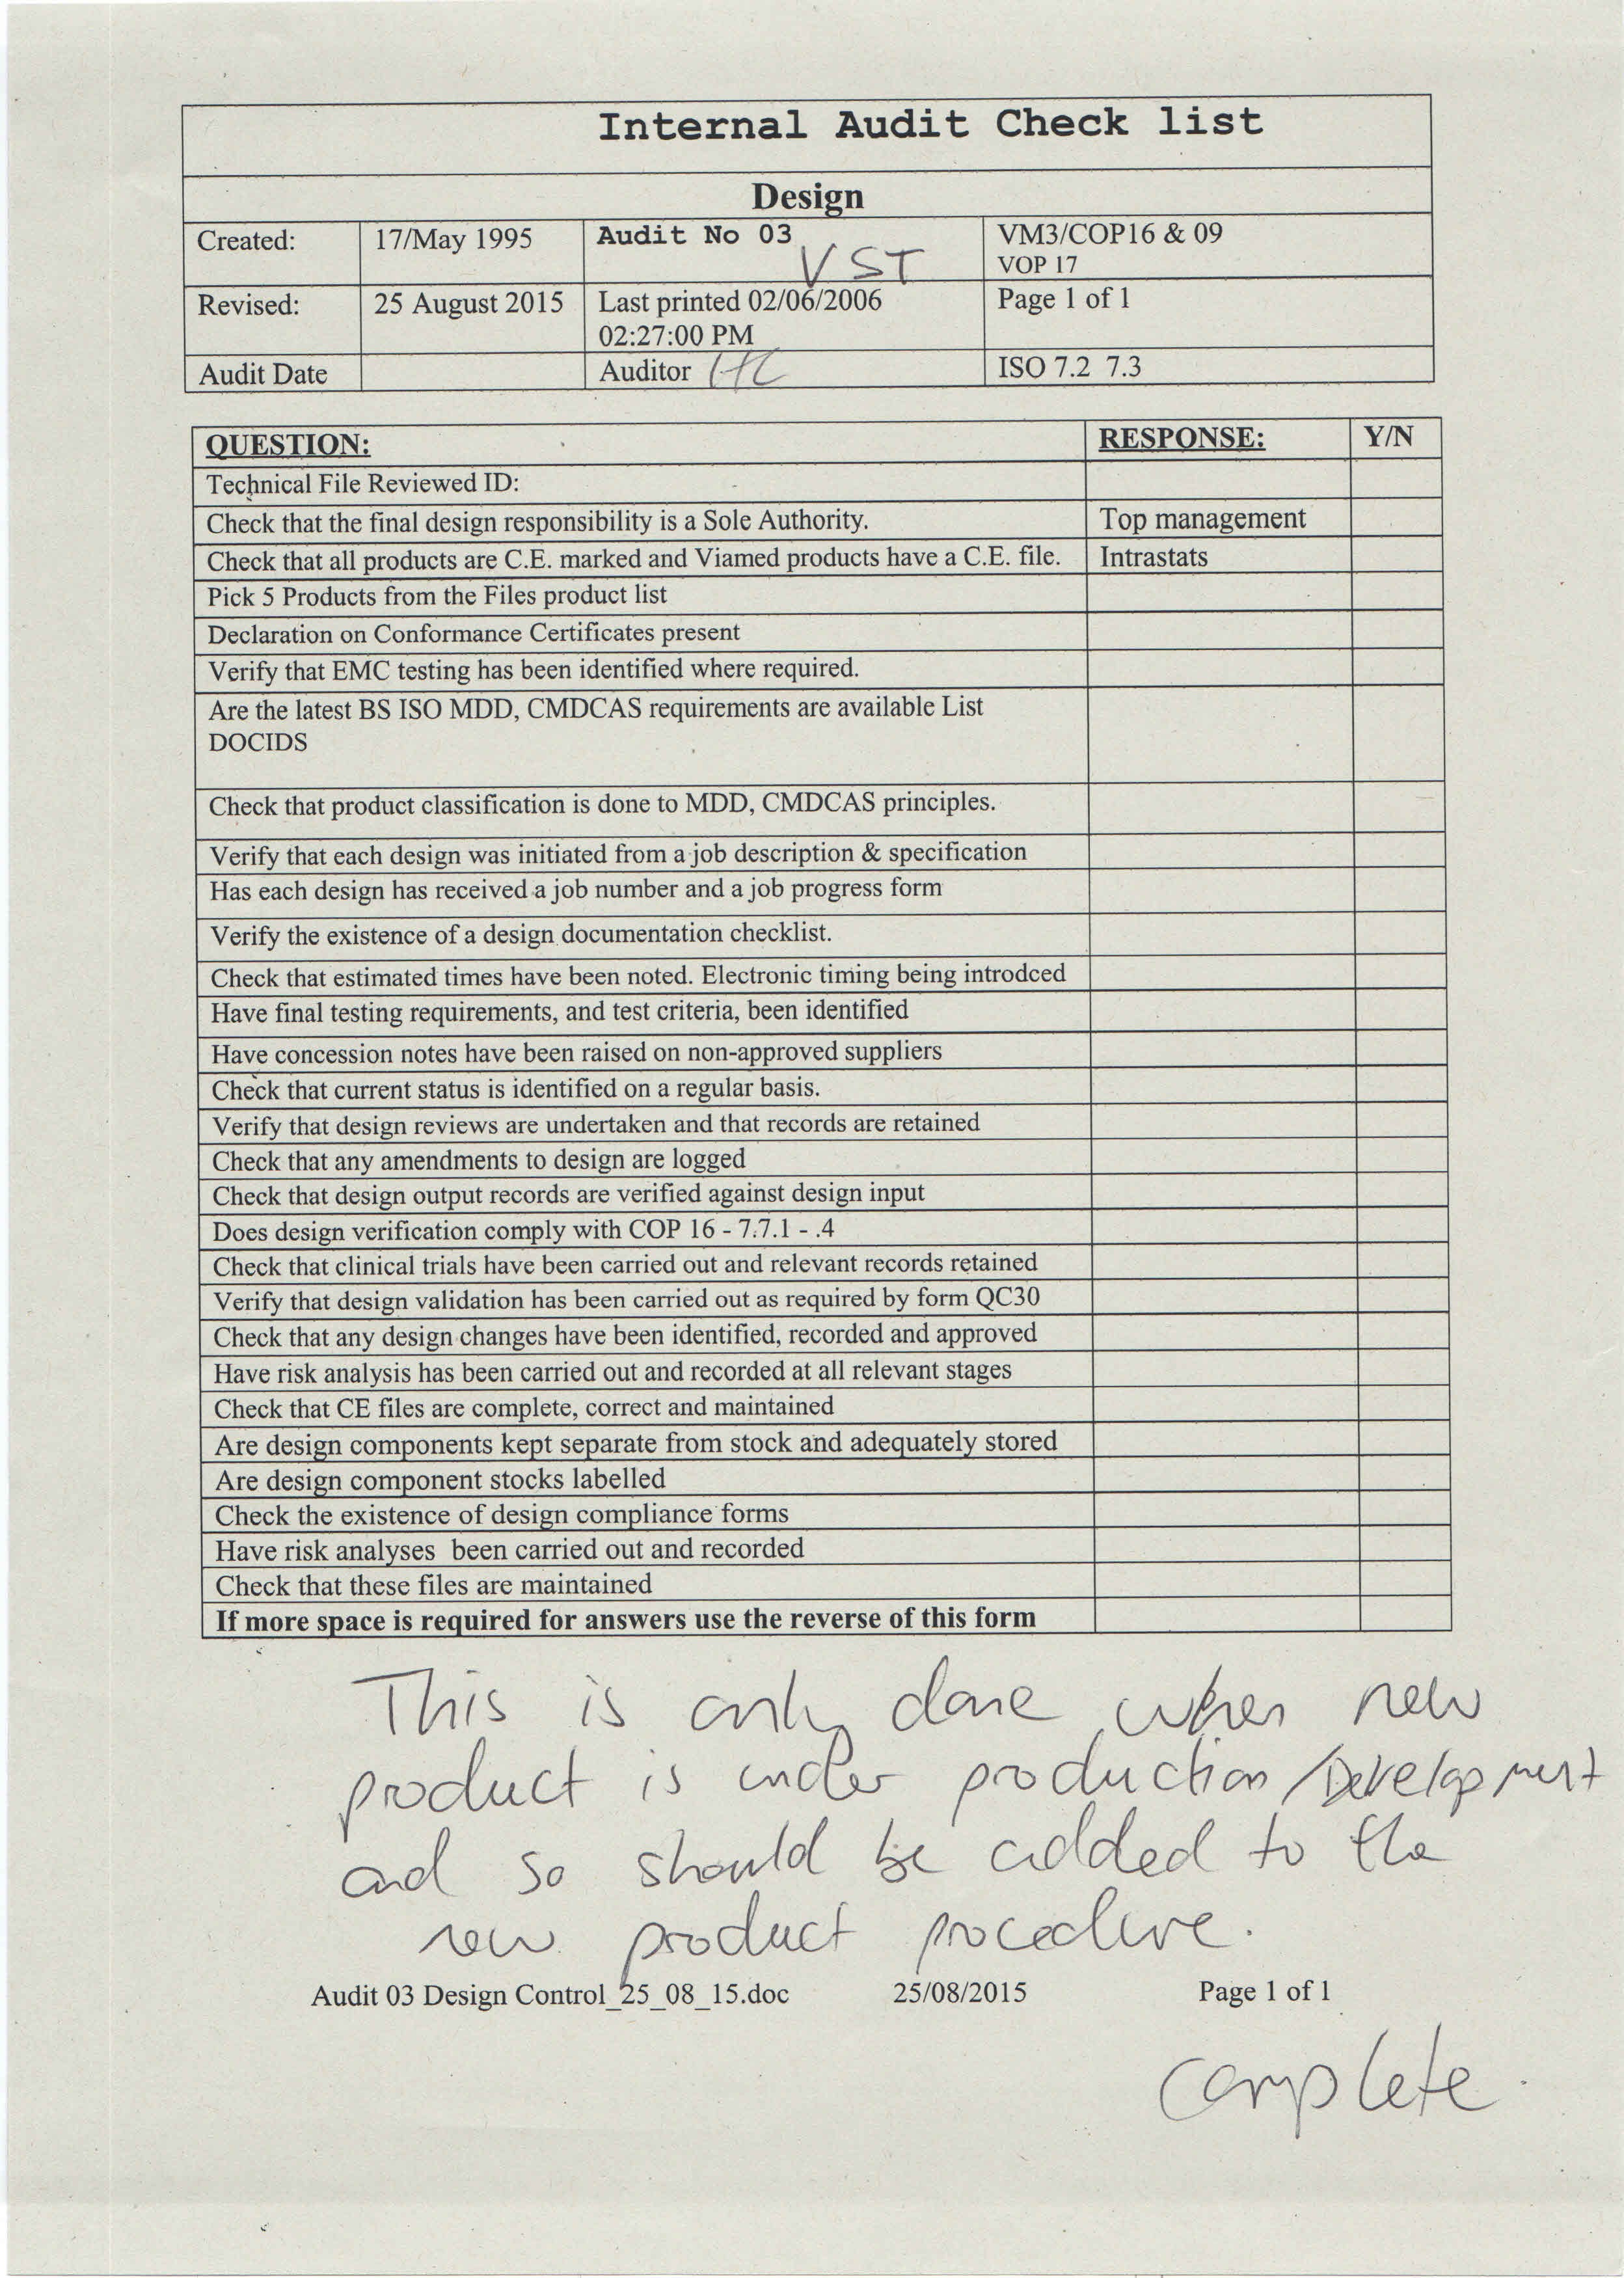 Internal Audit Check list
Design
Created: 17/May 1995 Audit No 03 VM3/COP16 & 09
VST VOP 17
Revised: 25 August 2015 Last printed 02/06/2006 Page 1 of 1
02:27:00 PM
Audit Date Auditor ISO 7.2 7.3
QUESTION: RESPONSE: Y/N
Technical File Reviewed ID:
Check that the final design responsibility is a Sole Authority. Top management
Check that all products are C.E. marked and Viamed products have a C.E. file. Intrastats
Pick 5 Products from the Files product list
Declaration on Conformance Certificates present
Verify that EMC testing has been identified where required.
Are the latest BS ISO MDD, CMDCAS requirements are available List
DOCIDS
Check that product classification is done to MDD, CMDCAS principles.
Verify that each design was initiated from a job description & specification
Has each design has received a job number and a job progress form
Verify the existence of a design documentation checklist.
Check that estimated times have been noted. Electronic timing being introdced
Have final testing requirements, and test criteria, been identified
Have concession notes have been raised on non-approved suppliers
Check that current status is identified on a regular basis.
Verify that design reviews are undertaken and that records are retained
Check that any amendments to design are logged
Check that design output records are verified against design input
Does design verification comply with COP 16 - 7.7.1 - .4
Check that clinical trials have been carried out and relevant records retained
Verify that design validation has been carried out as required by form QC30
Check that any design changes have been identified, recorded and approved
Have risk analysis has been carried out and recorded at all relevant stages
Check that CE files are complete, correct and maintained
Are design components kept separate from stock and adequately stored
Are design component stocks labelled
Check the existence of design compliance forms
Have risk analyses been carried out and recorded
Check that these files are maintained
If more space is required for answers use the reverse of this form
This is only done when new
product is under production/Development
and so should be added to the
new product procedure.
Audit 03 Design Control_25_08_15.doc 25/08/2015 Page 1 of 1
complete.